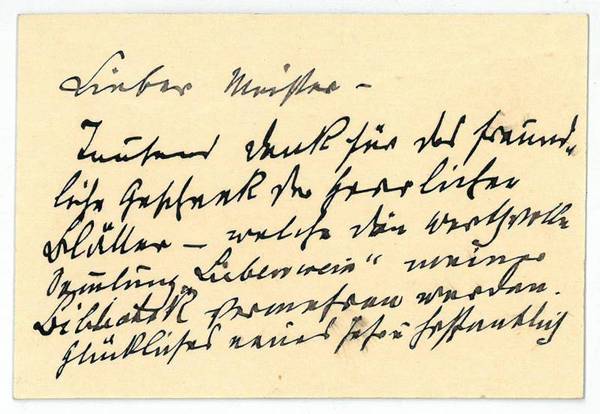 Lieber Meister –
Tausend Dank für das freund-
liche Geschenk der herrlichen
Blätter – welche die werthvolle
Samlung „Liebermein“ meiner
Bibliothek vermehren werden.
Glückliches neues Jahr